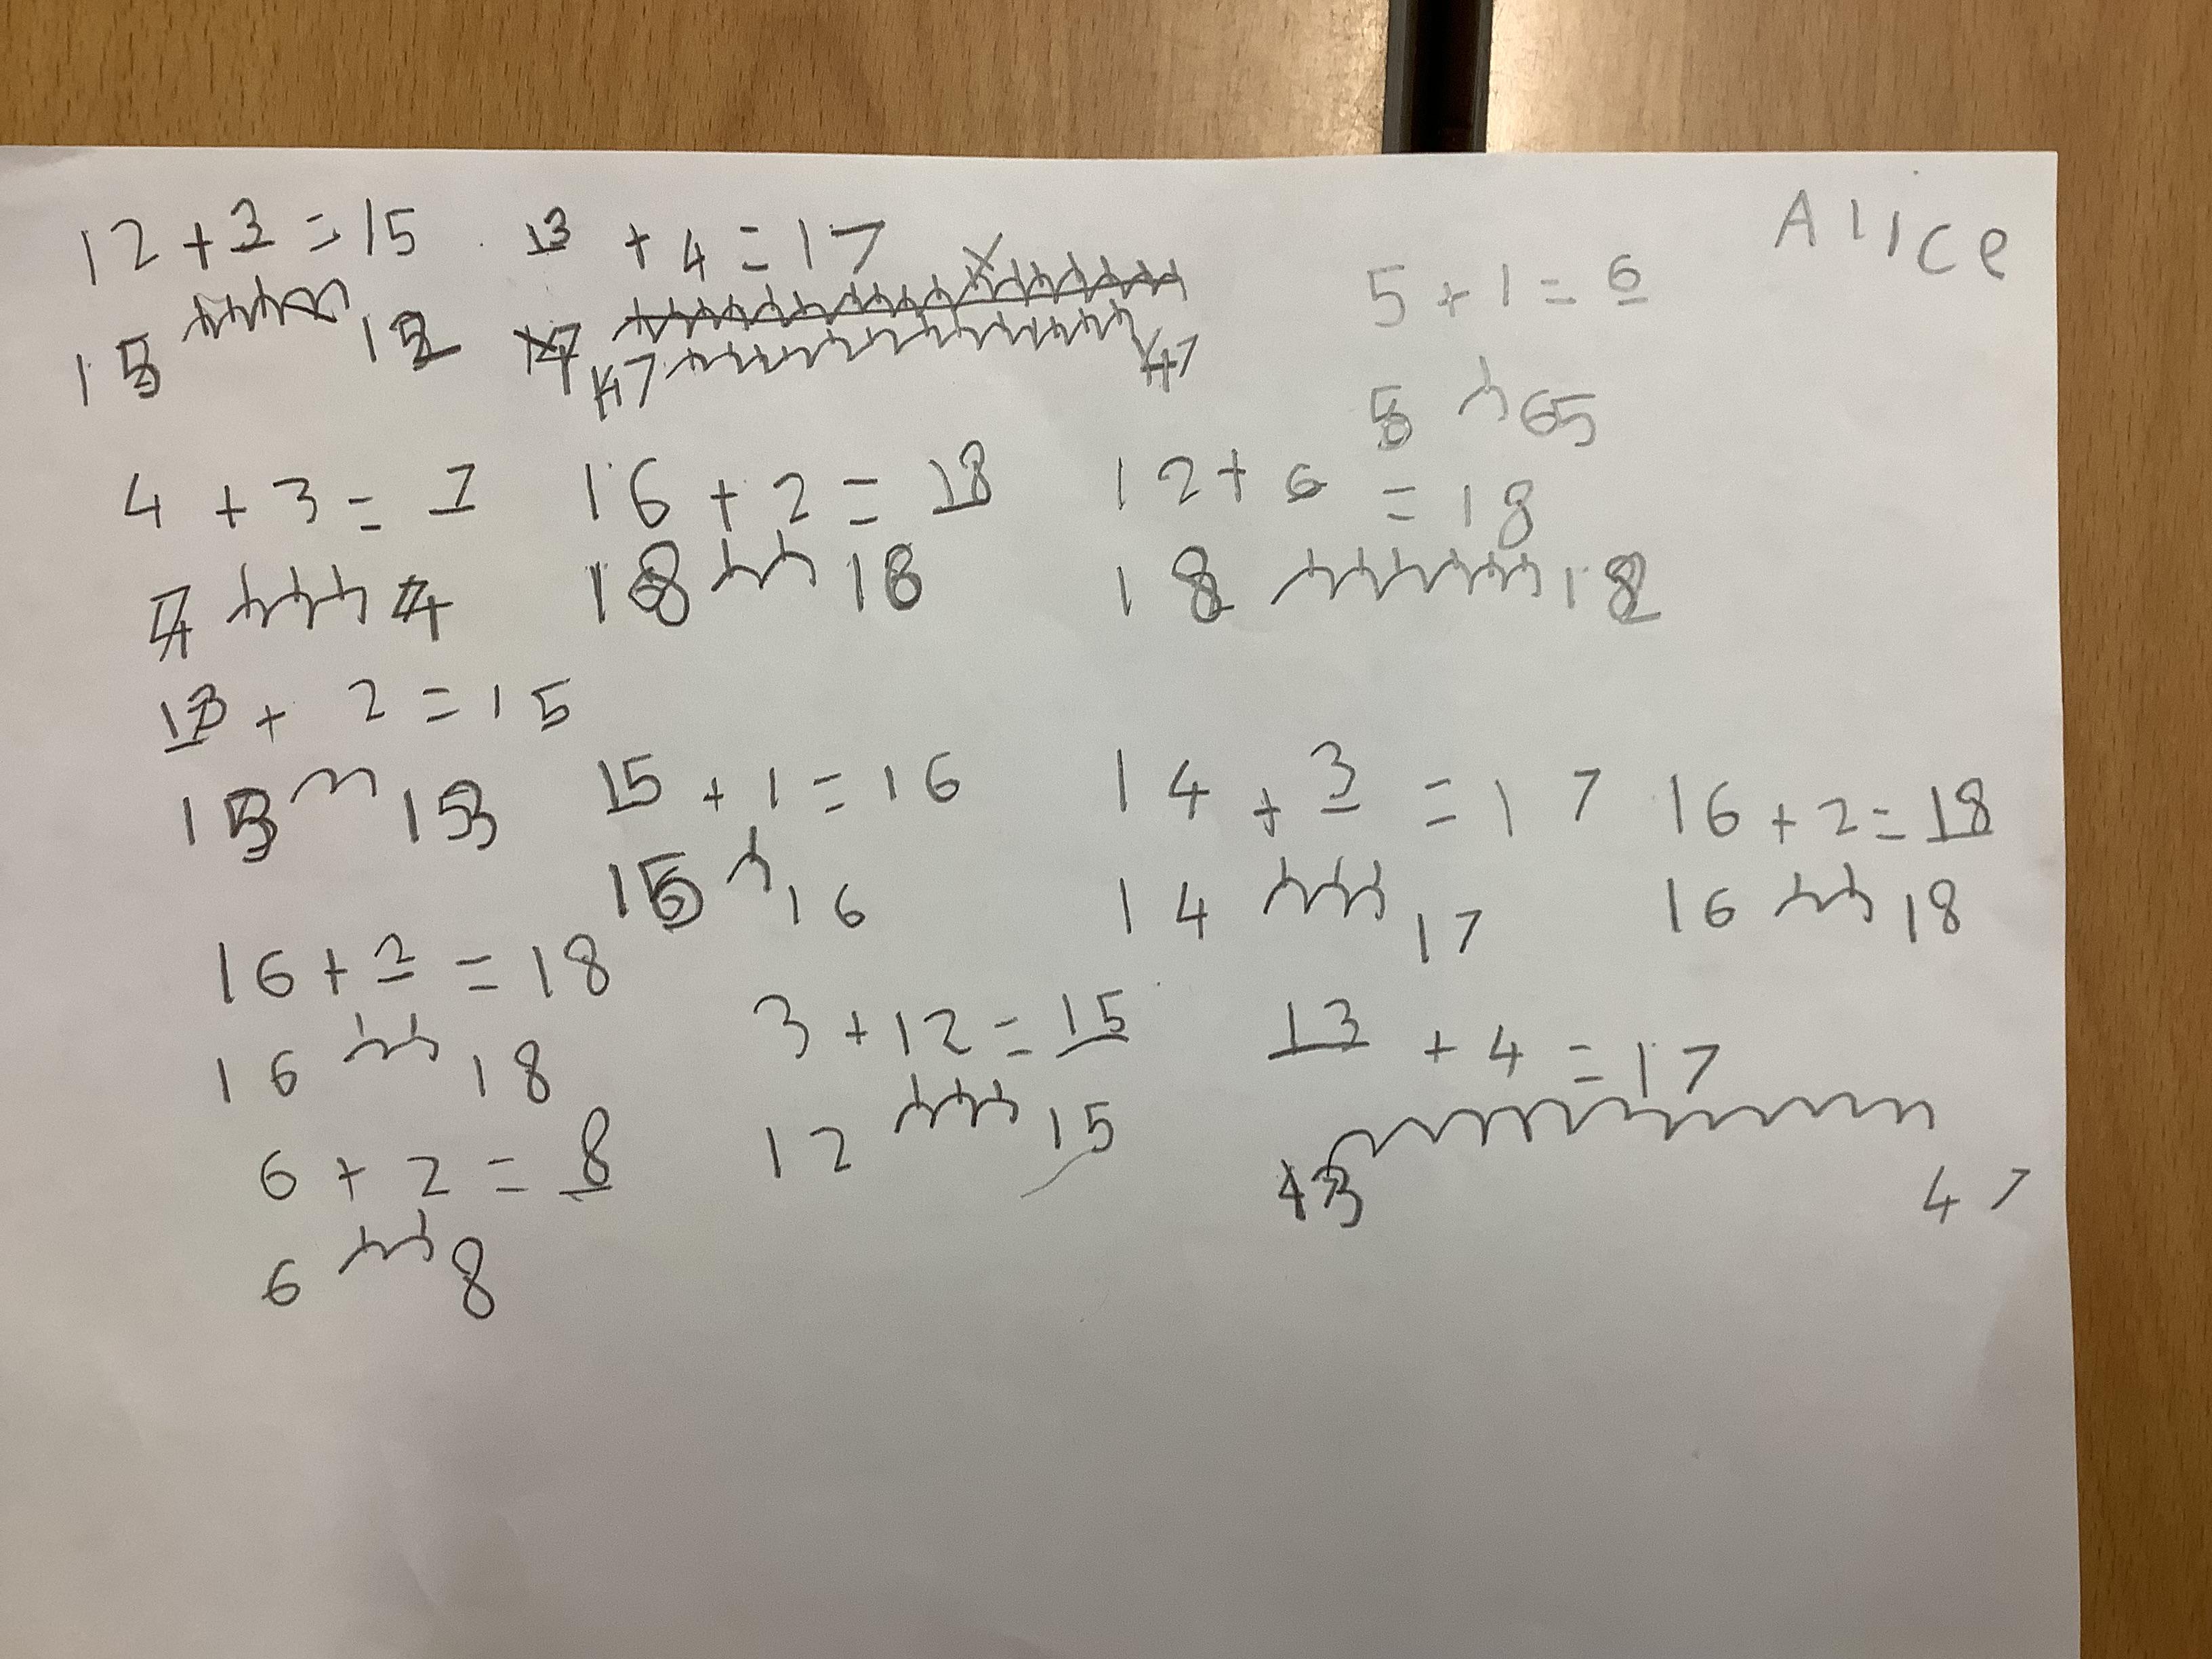 Alice
12 + 3 = 15
13 + 4 = 17
5 + 1 = 6
47 47
65
4 + 3 = 7
16 + 2 = 18
12 + 6 = 18
18 18
13 + 2 = 15
15 + 1 = 16
14 + 3 = 17
16 + 2 = 18
15 16
14 17
16 18
16 + 2 = 18
3 + 12 = 15
13 + 4 = 17
16 18
12 15
47
6 + 2 = 8
6 8